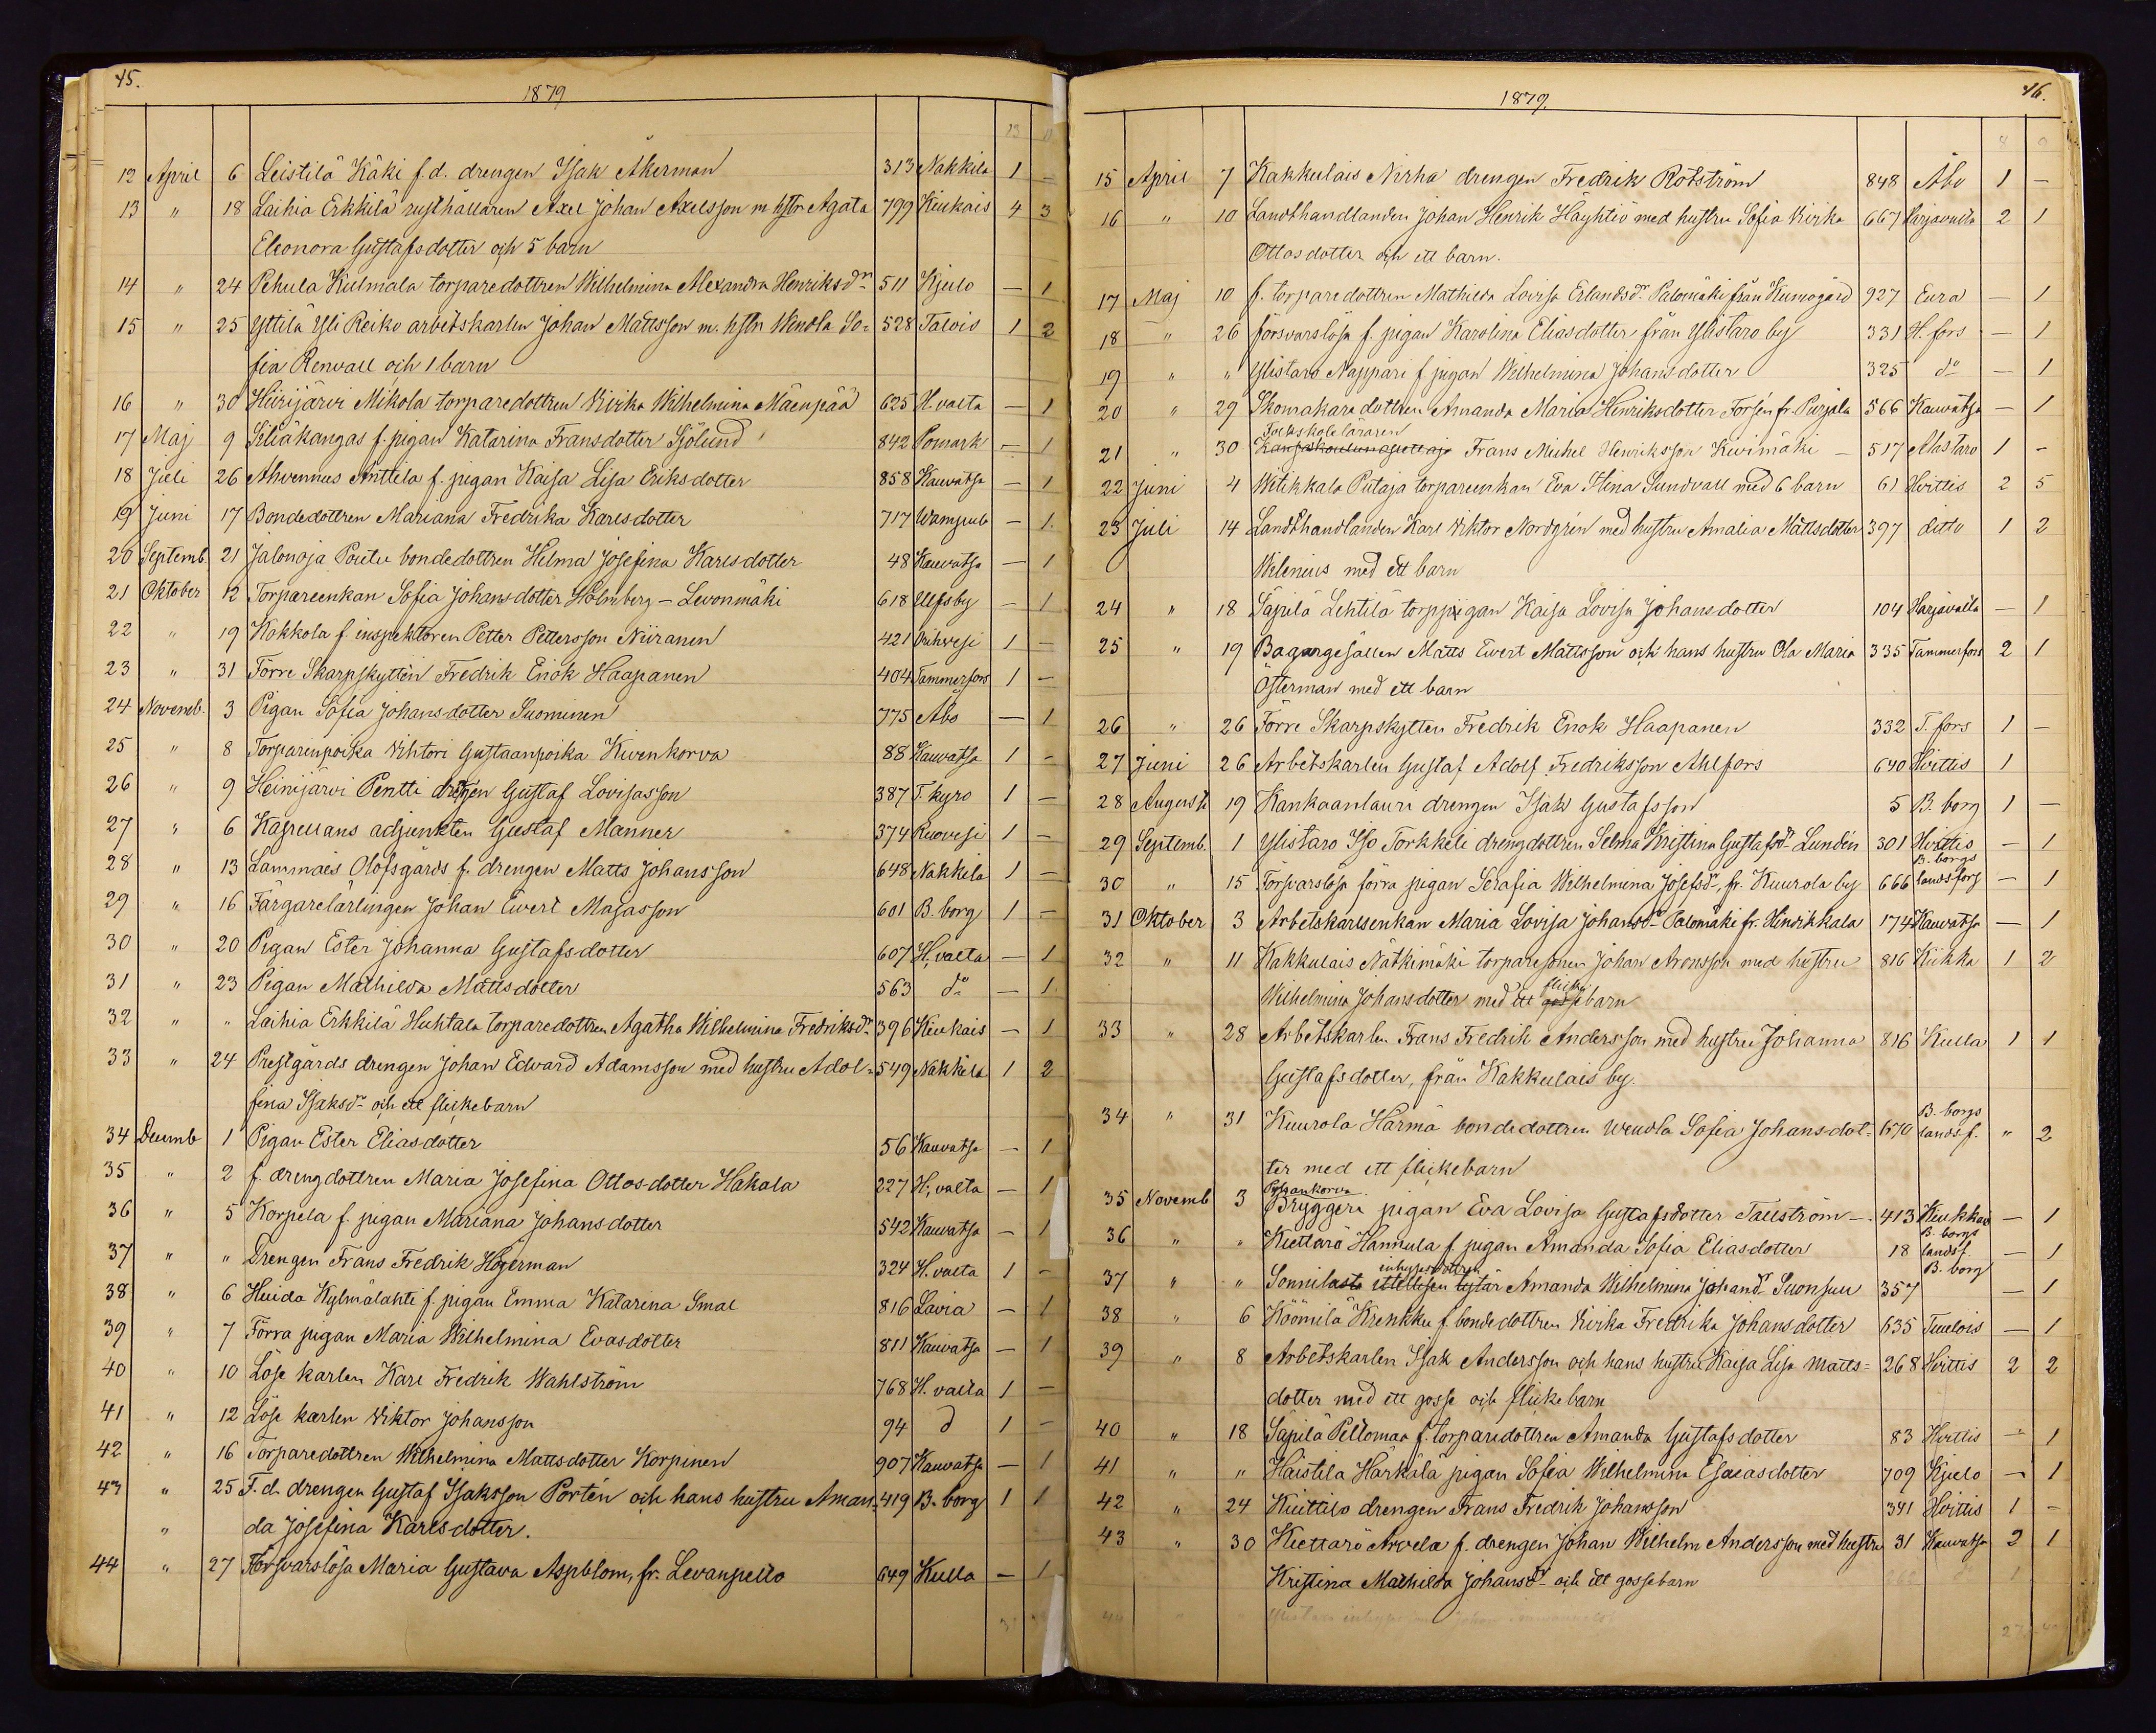 45.
1879
13
12 April 6 Leistilä Käki f.d. drengen Isak Åkerman 313 Nakkila 1 -
13 " 18 Laihia Erkkilä rusthållaren Axel Johan Axelsson m hstr Agata 799 Kiukais 4 3
Eleonora Gustafsdotter och 5 barn
14 " 24 Pehula Kulmala torparedottren Wilhelmina Alexandra Henriksdr 511 Kjulo - 1
15 " 25 Yttilä Yli Reiko arbetskarlen Johan Mattsson m. hstr Wendla So= 528 Talois 1 2
fia Renvall och 1 barn
16 " 30 Hiirijärvi Mikola torparedottren Kirka Wilhelmina Mäenpää 625 H.valta - 1
17 Maj 9 Seliäkangas f. pigan Katarina Fransdotter Sjölund 842 Pomark - 1
18 Juli 26 Ahvennus Anttila f. pigan Kaisa Lisa Eriksdotter 858 Kauvatsa - 1
19 Juni 17 Bondedottren Mariana Fredrika Karlsdotter 717 Wampub - 1
20 Septemb. 21 Jalonoja Poutu bondedottren Helma Josefina Karlsdotter 48 Kauvatsa - 1
21 Oktober 12 Torpareenkan Sofia Johansdotter Holmberg - Levonmäki 618 Ulfsby - 1
22 " 19 Kokkola f. inspektoren Petter Pettersson Niiranen 421 Orihvesi 1 -
23 " 31 Förre Skarpskytten Fredrik Enok Haapanen 404 Tammerfors 1 -
24 Novemb. 3 Pigan Sofia Johansdotter Suominen 775 Åbo - 1
25 " 8 Torparinpoika Vihtori Gustaanpoika Kivenkorva 88 Kauvatsa 1 -
26 " 9 Heinijärvi Pentti drengen Gustaf Lovisasson 387 T. kyro 1 -
27 " 6 Kapellans adjunkten Gustaf Manner 374 Ruovesi 1 -
28 " 13 Lammais Olofsgårds f. drengen Matts Johansson 648 Nakkila 1 -
29 " 16 Färgarelärlingen Johan Evert Majasson 601 B. borg 1 -
30 " 20 Pigan Ester Johanna Gustafsdotter 607 H,valta - 1
31 " 23 Pigan Mathilda Mattsdotter 563 do - 1
32 " " Laihia Erkkilä Huhtala torparedottren Agatha Wilhelmina Fredriksdr 396 Kiukais - 1
33 " 24 Prestgårds drengen Johan Edvard Adamsson med hustru Adol= 549 Nakkila 1 2
fina Isaksdr och ett flickebarn
34 Decemb 1 Pigan Ester Eliasdotter 56 Kauvatsa - 1
35 " 2 f. drengdottren Maria Josefina Ottosdotter Hakala 227 H,valta - 1
36 " 5 Korpela f. pigan Mariana Johansdotter 542 Kauvatsa - 1
37 " " Drengen Frans Fredrik Högerman 324 H.valta 1 -
38 " 6 Huida Kylmälahti f. pigan Emma Katarina Smal 816 Lavia - 1
39 " 7 Förra pigan Maria Wilhelmina Evasdotter 811 Kauvatsa - 1
40 " 10 Löse karlen Karl Fredrik Wahlström 768 H. valta 1 -
41 " 12 Löse karlen Viktor Johansson 94 d 1 -
42 " 16 Torparedottren Wilhelmina Mattsdotter Korpinen 907 Kauvatsa - 1
43 " 25 F.d. drengen Gustaf Isaksson Portén och hans hustru Aman= 419 B. borg 1 1
" da Josefina Karlsdotter.
44 " 27 Försvarslösa Maria Gustava Aspblom, fr. Levanpelto 649 Kulla - 1
46.
1879.
4 0
15 April 7 Kakkulais Nirha drengen Fredrik Rotström 848 Åbo 1 -
16 " 10 Landthandlanden Johan Henrik Häyhtiö med hustru Sofia Kirka 667 Harjavalta 2 1
Ottosdotter och ett barn.
17 Maj 10 f. torparedottren Mathilda Lovisa Erlandsdr Palomäki från Kumogård 927 Eura - 1
18 " 26 försvarslösa f. pigan Karolina Eliasdotter från Ylistaro by 331 H. fors - 1
19 " " Ylistaro Nappari f pigan Wilhelmina Johansdotter 325 do - 1
20 " 29 Skomakara dottren Amanda Maria Henriksdotter Forsén fr. Purjala 566 Kauvatsa - 1
Folkskoleläraren
21 " 30 Kansakoulunopettaja Frans Michel Henriksson Kivimäki - 517 Alastaro 1 -
22 Juni 4 Witikkala Putaja torpareenkan Eva Stina Sundvall med 6 barn 61 Hvittis 2 5
23 Juli 14 Landthandlanden Karl Viktor Nordgrén med hustru Amalia Mattsdotter 397 ditto 1 2
Wilenius med ett barn
24 " 18 Säpilä Lehtilä torppigan Kaisa Lovisa Johansdotter 104 Harjavalta - 1
25 " 19 Bagaregesällen Matts Evert Mattsson och hans hustru Ola Maria 335 Tammerfors 2 1
Österman med ett barn
26 " 26 Förre Skarpskytten Fredrik Enok Haapanen 332 T. fors 1 -
27 Juni 26 Arbetskarlen Gustaf Adolf Fredriksson Ahlfors 640 Hvittis 1
28 Augusti 19 Kankaanlauri drengen Isak Gustafsson 5 B. borg 1 -
29 Septemb. 1 Ylistaro Iso Torkkeli drengdottren Selma Kristina Gustafsdr Lundén 301 Hvittis - 1
B. borgs
30 " 15 Försvarslösa förra pigan Serafia Wilhelmina Josefsdr, fr. Kuurola by 666 landsförs - 1
31 Oktober 3 Arbetskarlsenkan Maria Lovisa Johansdr Palomäki fr. Hinrikkala 174 Kauvatsa - 1
32 " 11 Kakkulais Nätkimäki torparesonen Johan Aronsson med hustru 816 Kiikka 1 2
flicke
Wilhelmina Johansdotter med ett gossebarn
33 " 28 Arbetskarlen Frans Fredrik Andersson med hustru Johanna 816 Kulla 1 1
Gustafsdotter, från Kakkulais by.
B. borgs
34 " 31 Kuurola Härmä bondedottren Wendla Sofia Johansdot= 670 lands f. " 2
ter med ett flickebarn
Pyssankorva
35 Novemb 3 Bryggeri pigan Eva Lovisa Gustafsdotter Tallström - 413 Kiukkais - 1
B. borgs
36 " " Kiettare Hannula f. pigan Amanda Sofia Eliasdotter 18 landsf. - 1
inhysesdottren B. borg
37 " " Sonnilasta itsellisen tytär Amanda Wilhelmina Johansdr Suonsuu 357 - 1
38 " 6 Köömilä Krenkku f. bondedottren Kirka Fredrika Johansdotter 635 Tuulois - 1
39 " 8 Arbetskarlen Isak Andersson och hans hustru Kaisa Lisa Matts= 268 Hvittis 2 2
dotter med ett gosse och flickebarn
40 " 18 Säpilä Peltomaa f. torparedottren Amanda Gustafsdotter 83 Hvittis - 1
41 " " Haistila Härkälä pigan Sofia Wilhelmina Esaiasdotter 709 Kjulo - 1
42 " 24 Kuittilo drengen Frans Fredrik Johansson 341 Hvittis 1 -
43 " 30 Kiettare Arvela f. drengen Johan Wilhelm Andersson med hustru 31 Kauvatsa 2 1
Kristina Mathilda Johansdr och ett gossebarn
44